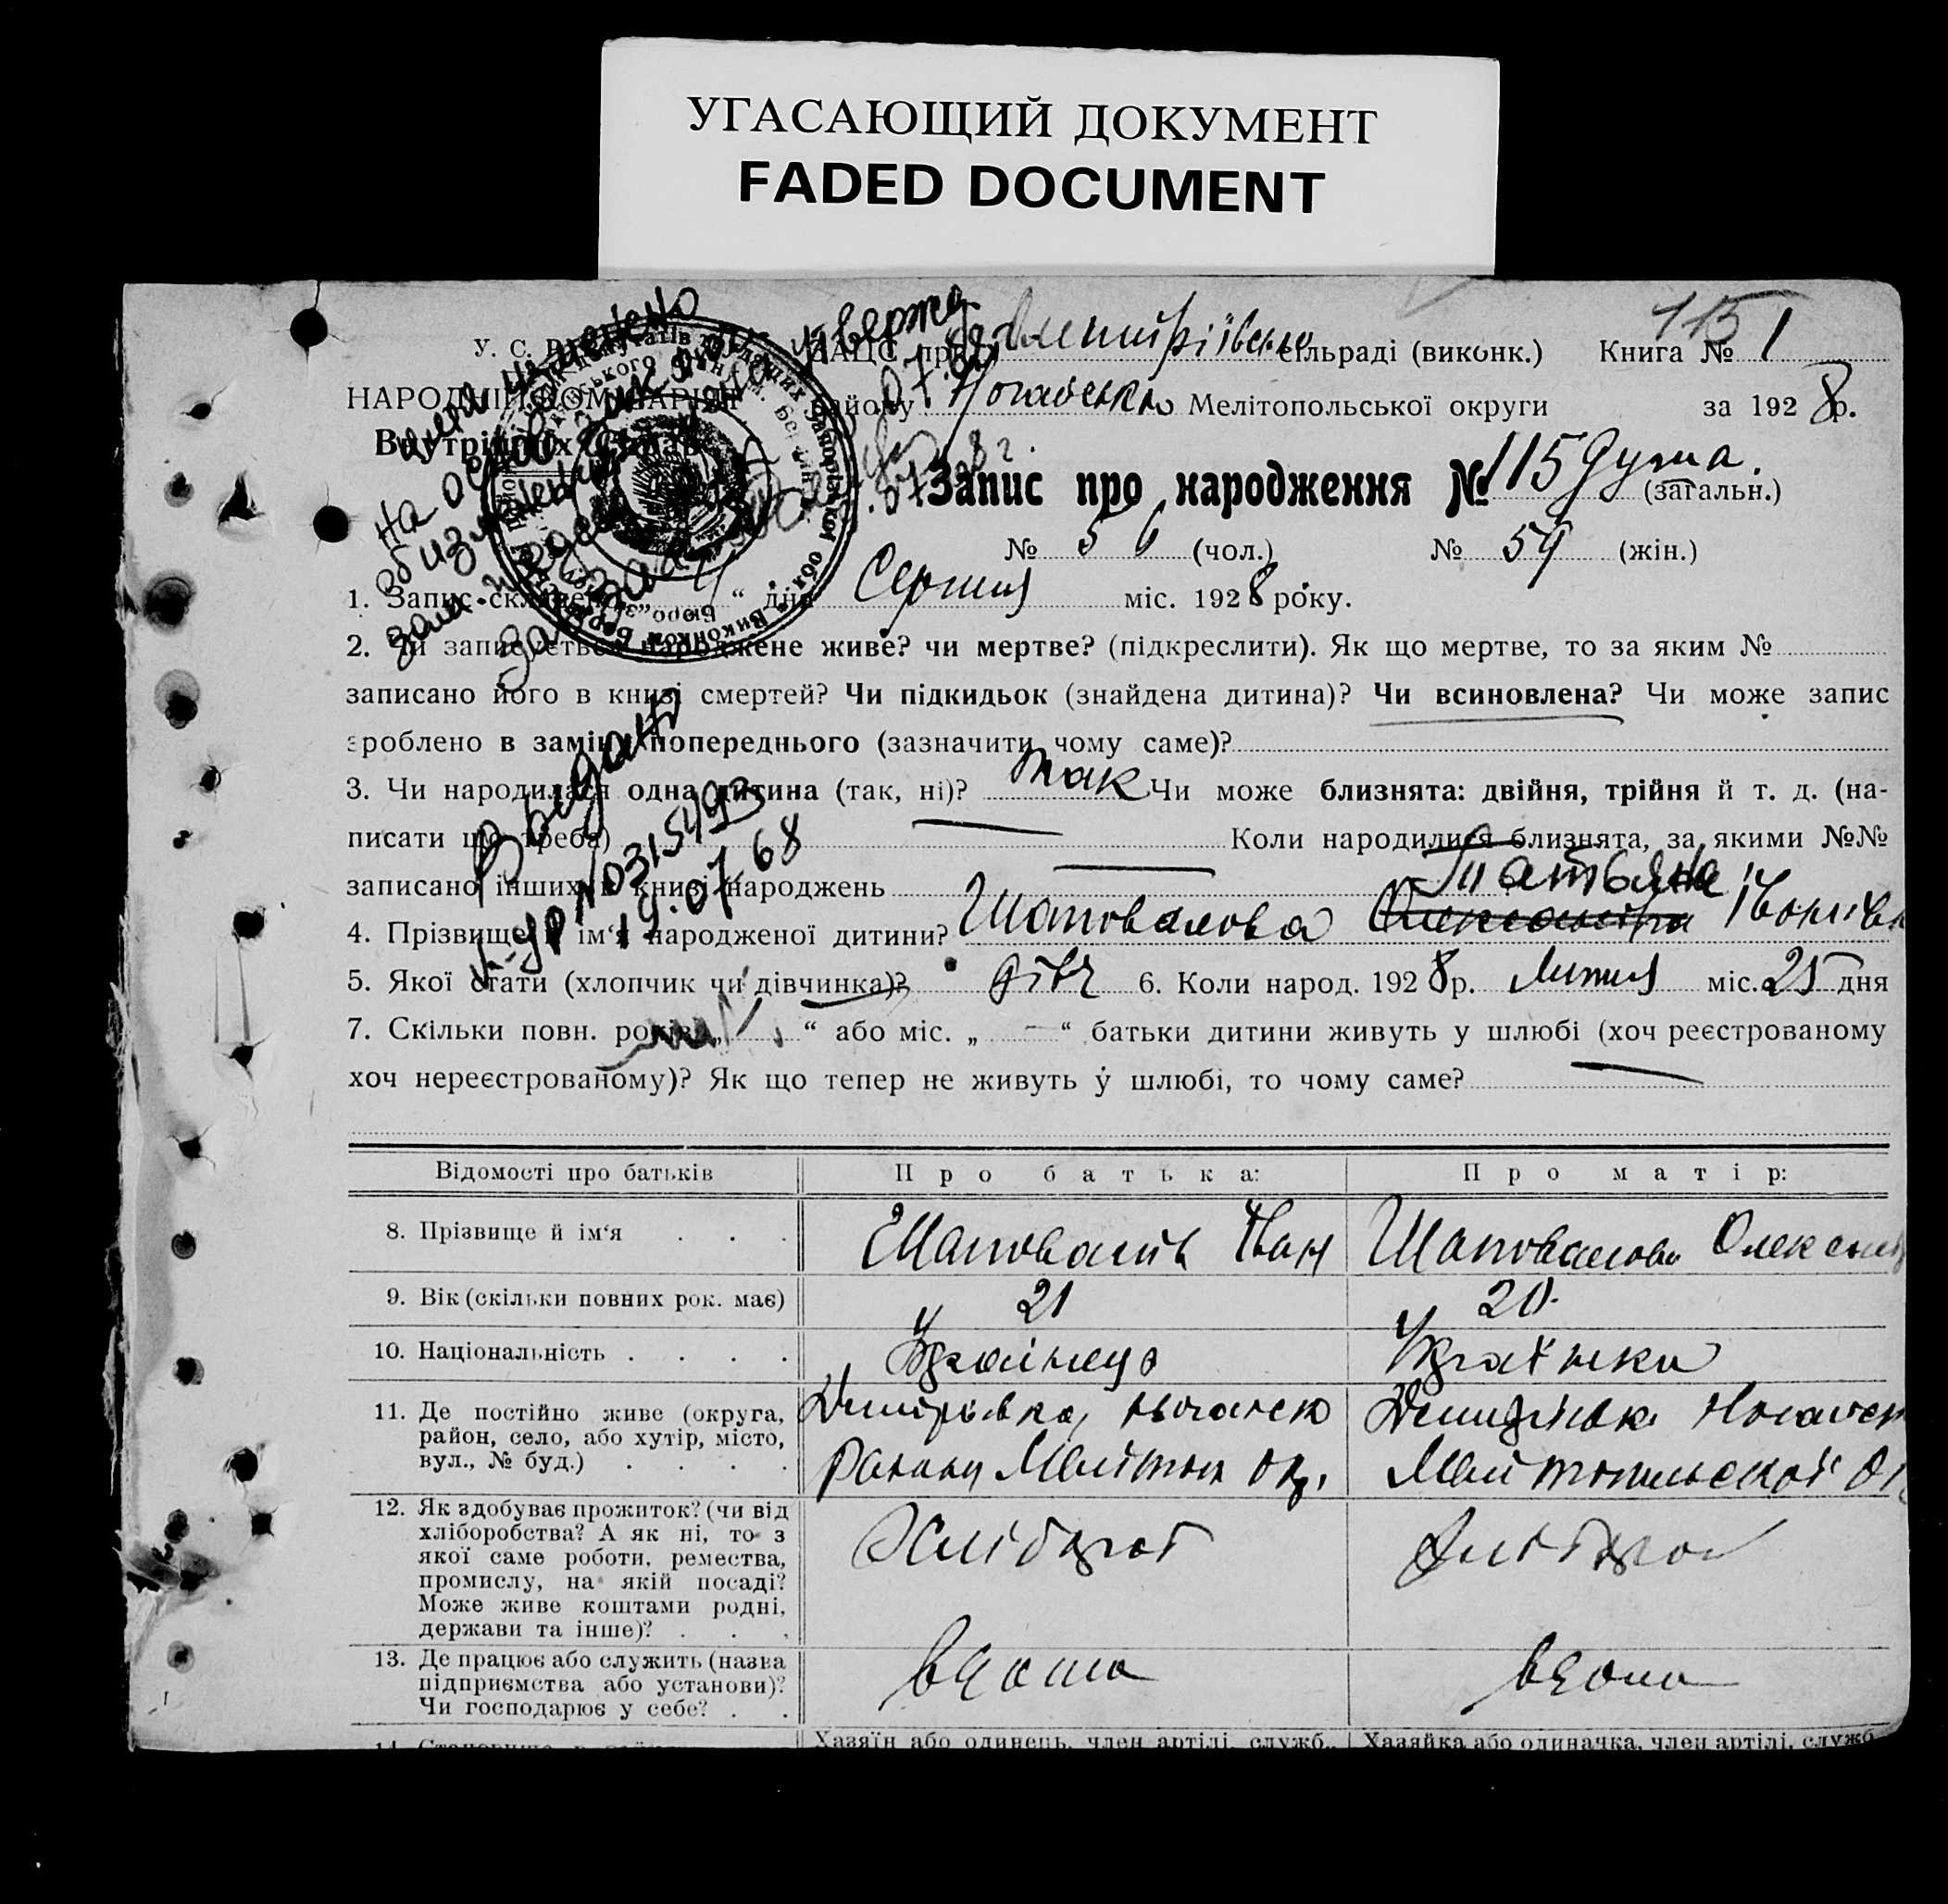 УГАСАЮЩИЙ ДОКУМЕНТ
FADED DOCUMENT
115
У. С. ЗАЦС при Дмитрівські сільраді (виконк.) Книга № 1
НАРОДНІЙ КОМІСАРІЯТ району Ногайськ Мелітопольської округи за 1928 р.
Внутрішніх Справ
Запис про народження № 115 душа. (загальн.)
№ 56 (чол.) № 59 (жін.)
1. Запис складено „ 4 “ дня Серпня міс. 1928 року.
2. Чи записується народжене живе? чи мертве? (підкреслити). Як що мертве, то за яким №
записано його в книзі смертей? Чи підкидьок (знайдена дитина)? Чи всиновлена? Чи може запис
зроблено в заміну попереднього (зазначити чому саме)?
3. Чи народилася одна дитина (так, ні)? так Чи може близнята: двійня, трійня й т. д. (на-
писати що треба) Коли народилися близнята, за якими №№
записано інших в книзі народжень
Татьяна
4. Прізвище й ім‘я народженої дитини? Шаповалова Олександра Іванівн
5. Якої стати (хлопчик чи дівчинка)? дівч 6. Коли народ. 1928 р. Липня міс. 25 дня
7. Скільки повн. років „ “ або міс. „ — “ батьки дитини живуть у шлюбі (хоч реєстрованому
хоч нереєстрованому)? Як що тепер не живуть у шлюбі, то чому саме?
Выдано
№ 0315493
19.07.68
Відомості про батьків Про батька: Про матір:
8. Прізвище й ім‘я . . . Шаповалів Іван Шаповалова Олексан
9. Вік (скільки повних рок. має) 21 20.
10. Національність . . . . Українець Українка
11. Де постійно живе (округа, район, село, або хутір, місто, вул., № буд.) . . . .
Дмитрівка, Ногайськ
Району Меліт. окр.
Дмитрівка Ногайськ
Мелітопильскої Ок
12. Як здобуває прожиток? (чи від хліборобства? А як ні, то з якої саме роботи, ремества, промислу, на якій посаді? Може живе коштами родні, держави та інше)? . . .
Хлібороб
Хлібороб
13. Де працює або служить (назва підприємства або установи)? Чи господарює у себе? . .
вдома
вдома
Хазяїн або одинець, член артілі, служб., Хазяйка або одиначка, член артілі, служб